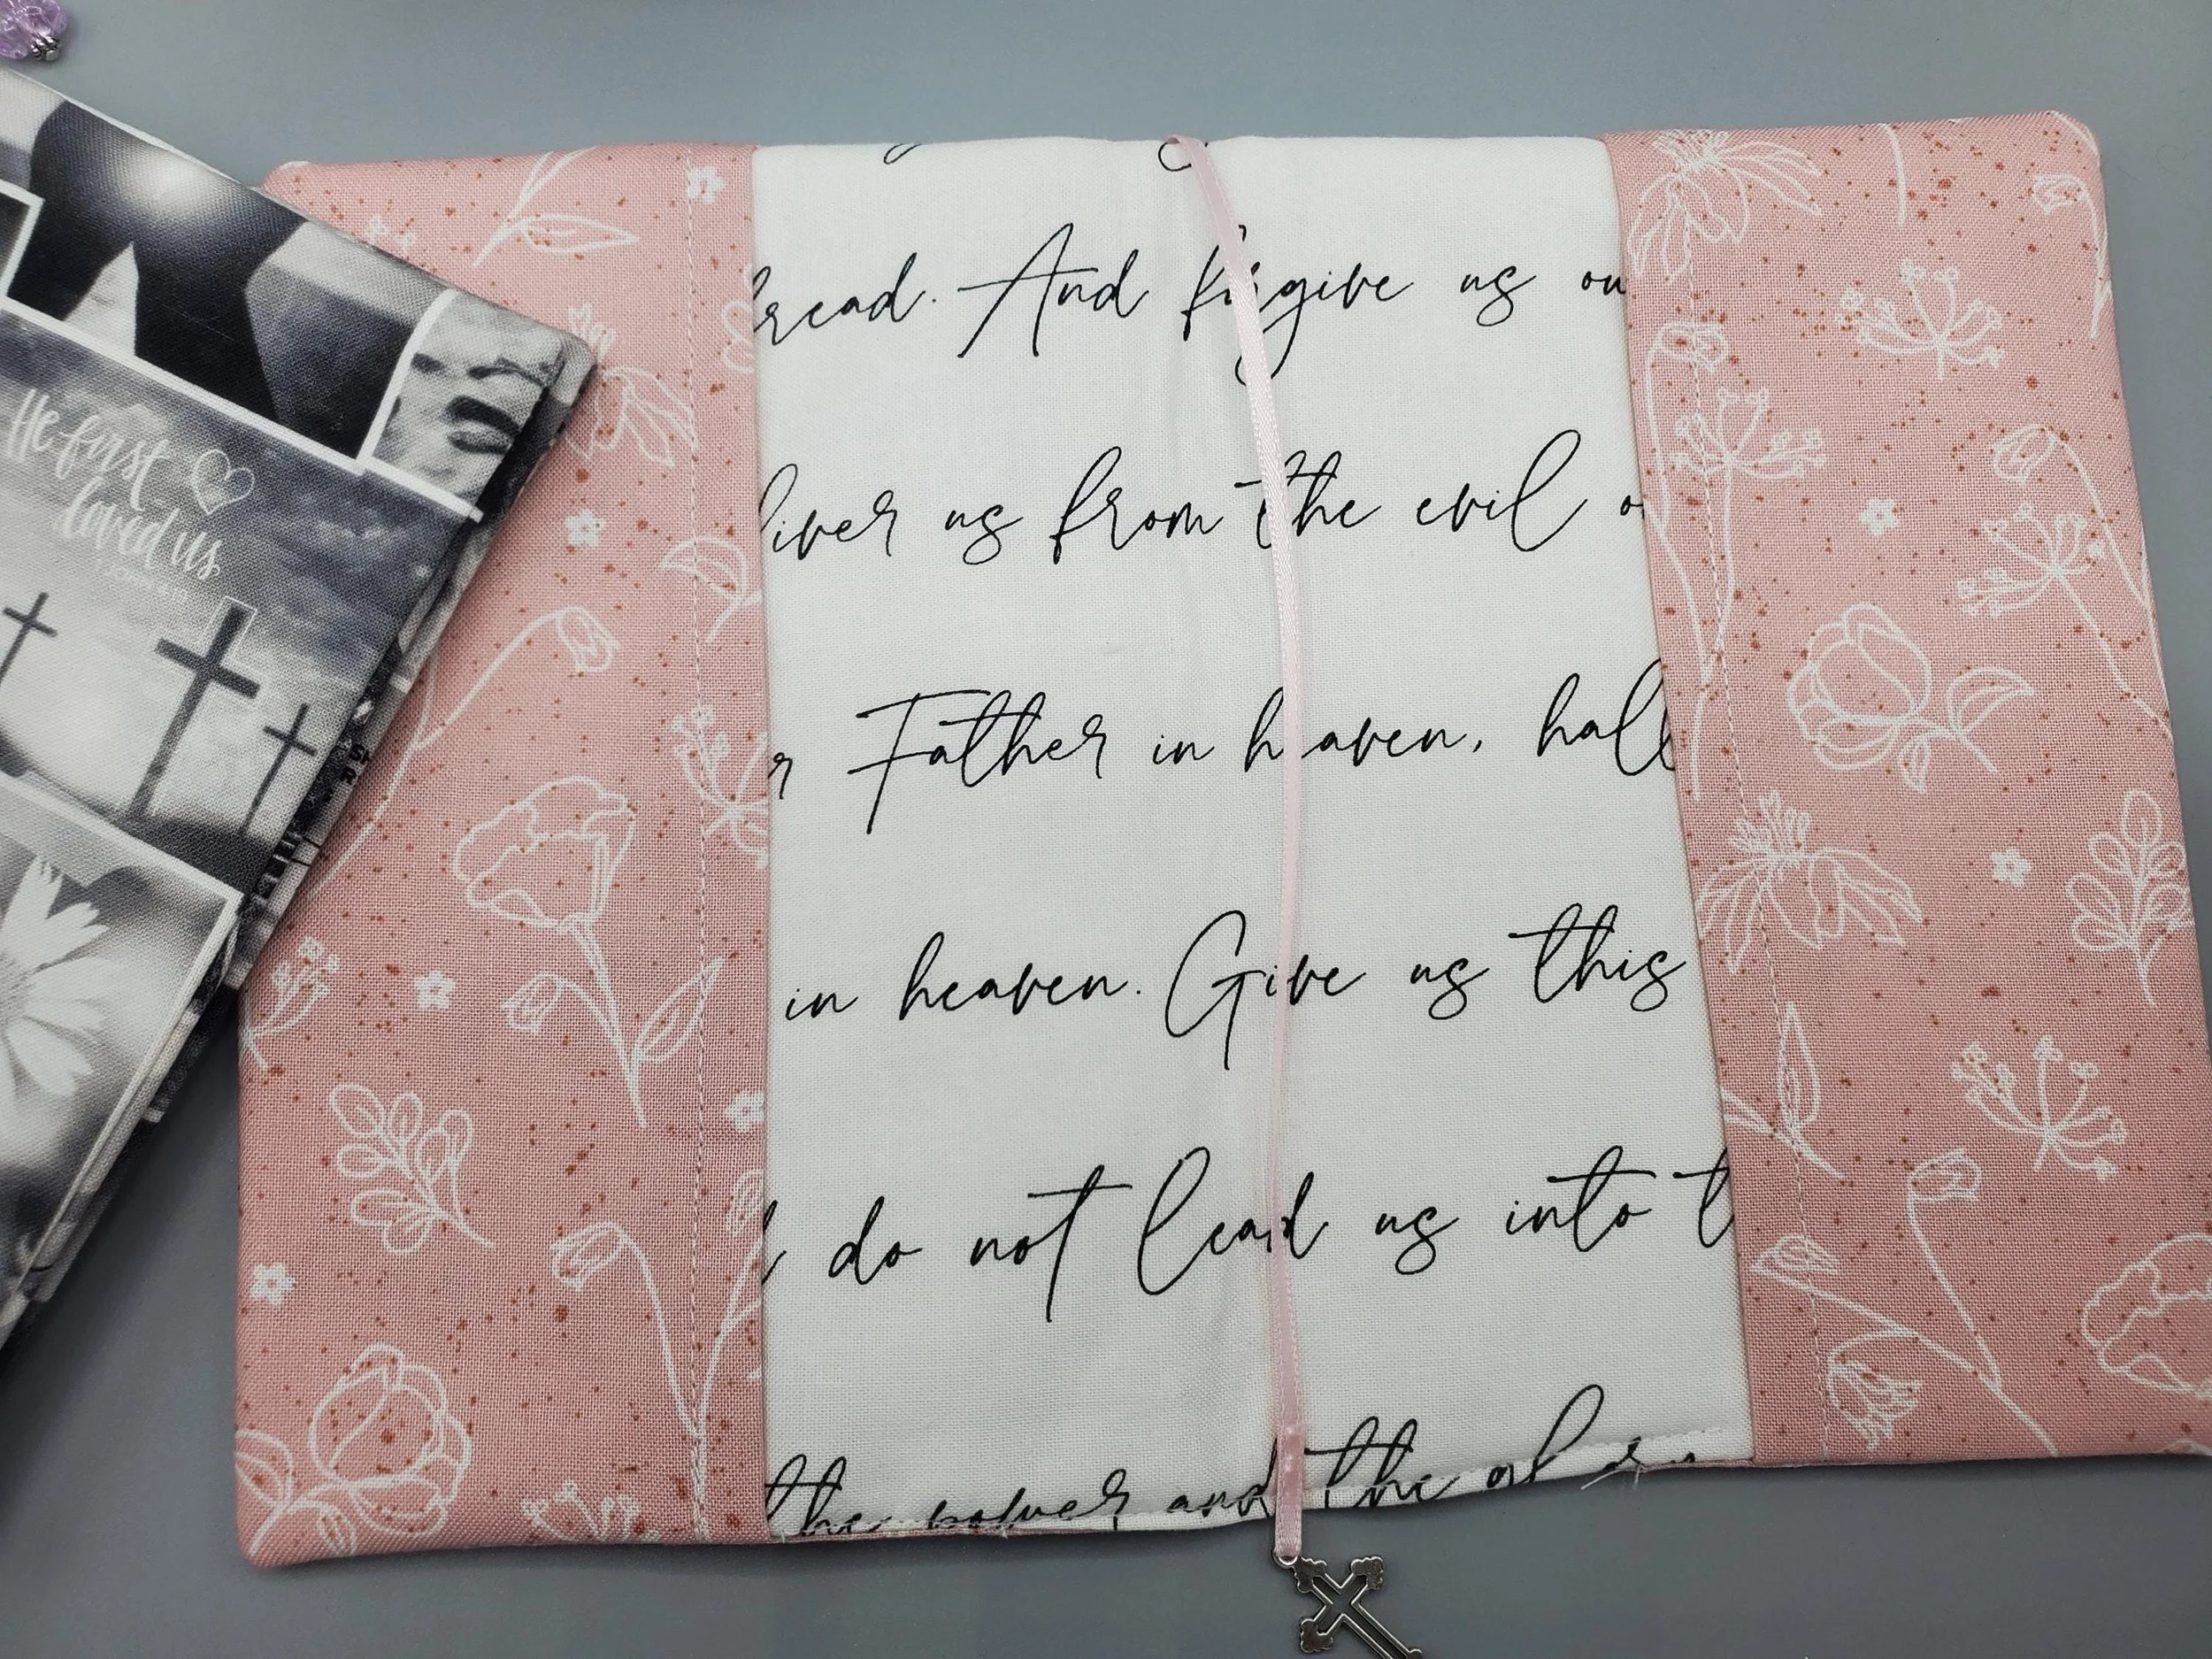 He first
loved us
bread. And forgive us ou
liver us from the evil o
r Father in heaven, hall
in heaven. Give us this
d do not lead us into t
the power and the glory